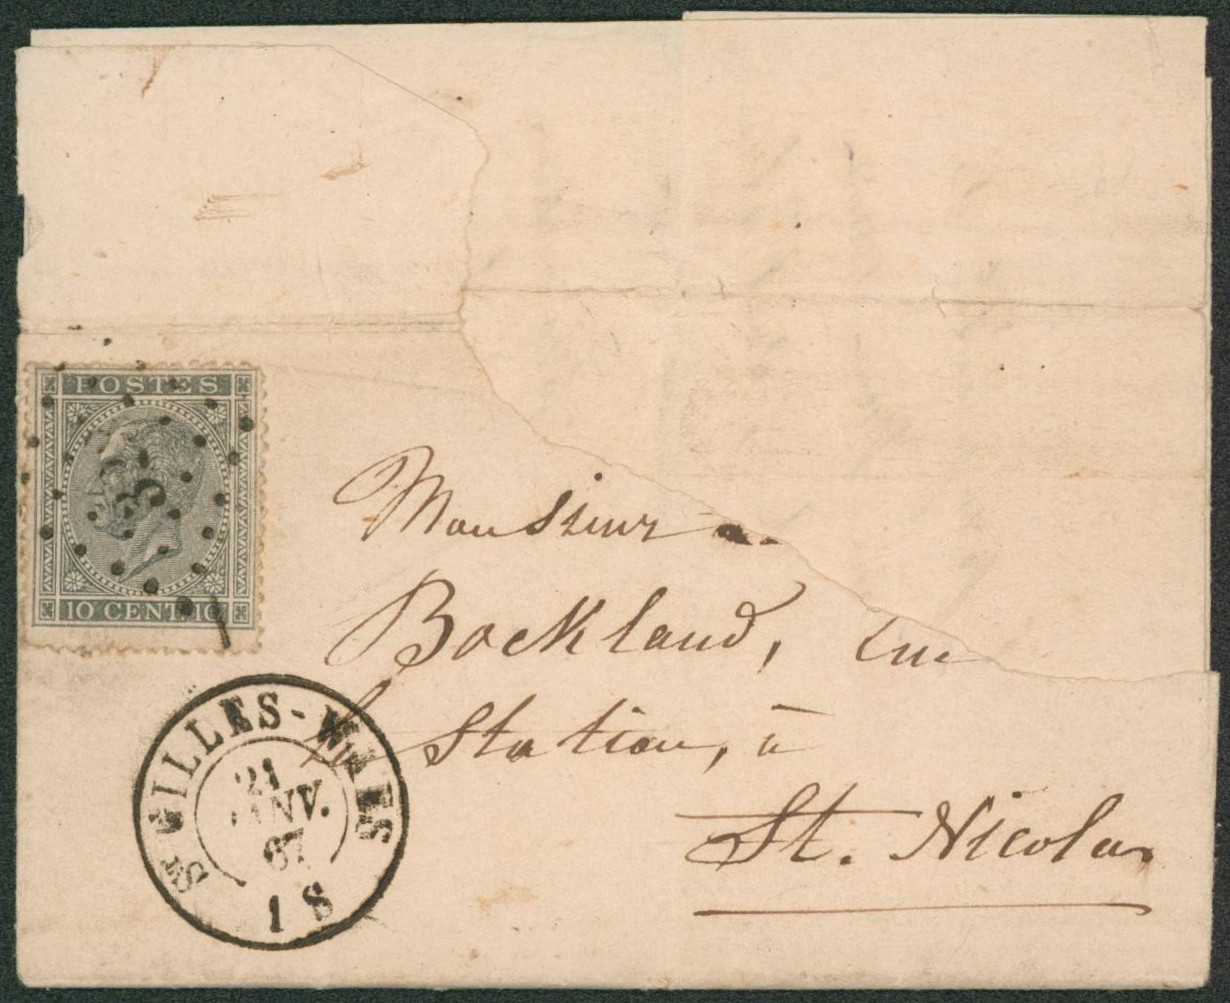 POSTES
10 CENT. 10
Monsieur
Bockland,
Station, à
St. Nicolas
ST GILLES-WAES
21
JANV.
67
1 S